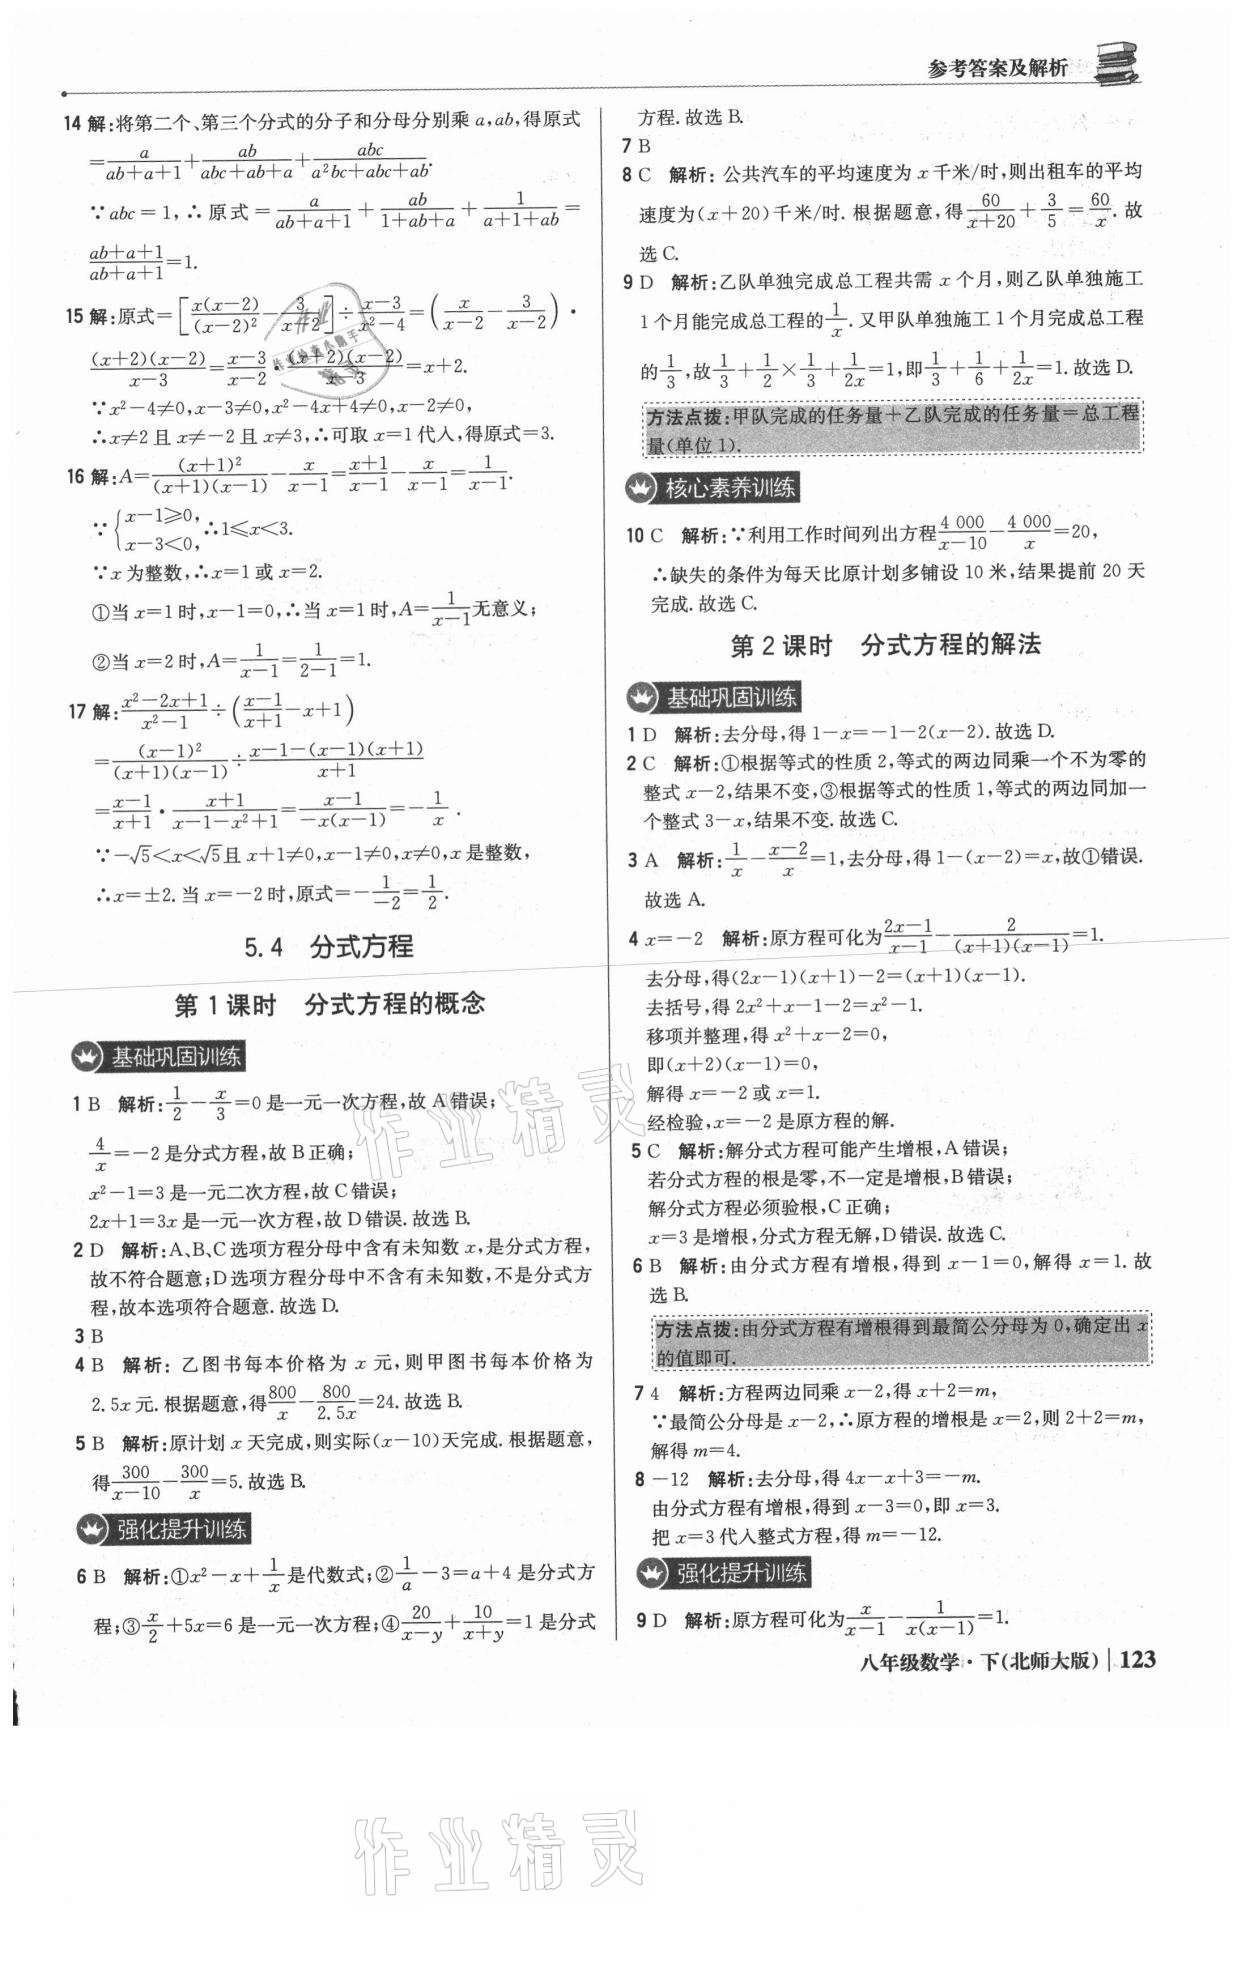 参考答案及解析
14 解:将第二个、第三个分式的分子和分母分别乘 a,ab,得原式
=a/(ab+a+1)+ab/(abc+ab+a)+abc/(a²bc+abc+ab).
∵abc=1,∴原式=a/(ab+a+1)+ab/(1+ab+a)+1/(a+1+ab)=
(ab+a+1)/(ab+a+1)=1.
15 解:原式=[x(x-2)/(x-2)²-3/(x-2)]÷(x-3)/(x²-4)=(x/(x-2)-3/(x-2))·
(x+2)(x-2)/(x-3)=(x-3)/(x-2)·(x+2)(x-2)/(x-3)=x+2.
∵x²-4≠0,x-3≠0,x²-4x+4≠0,x-2≠0,
∴x≠2 且 x≠-2 且 x≠3,∴可取 x=1代入,得原式=3.
16 解:A=(x+1)²/((x+1)(x-1))-x/(x-1)=(x+1)/(x-1)-x/(x-1)=1/(x-1).
∵{x-1≥0, x-3<0,∴1≤x<3.
∵x 为整数,∴x=1 或 x=2.
①当 x=1 时,x-1=0,∴当 x=1 时,A=1/(x-1)无意义;
②当 x=2 时,A=1/(x-1)=1/(2-1)=1.
17 解:(x²-2x+1)/(x²-1)÷((x-1)/(x+1)-x+1)
=(x-1)²/((x+1)(x-1))÷(x-1-(x-1)(x+1))/(x+1)
=(x-1)/(x+1)·(x+1)/(x-1-x²+1)=(x-1)/(-x(x-1))=-1/x.
∵-√5<x<√5且 x+1≠0,x-1≠0,x≠0,x 是整数,
∴x=±2.当 x=-2 时,原式=-1/(-2)=1/2.
5.4 分式方程
第 1 课时 分式方程的概念
基础巩固训练
1 B 解析:1/2-x/3=0 是一元一次方程,故 A 错误;
4/x=-2 是分式方程,故 B 正确;
x²-1=3 是一元二次方程,故 C 错误;
2x+1=3x 是一元一次方程,故 D 错误.故选 B.
2 D 解析:A、B、C 选项方程分母中含有未知数 x,是分式方程,
故不符合题意;D 选项方程分母中不含有未知数,不是分式方
程,故本选项符合题意.故选 D.
3 B
4 B 解析:乙图书每本价格为 x 元,则甲图书每本价格为
2.5x 元.根据题意,得800/x-800/2.5x=24.故选 B.
5 B 解析:原计划 x 天完成,则实际(x-10)天完成.根据题意,
得300/(x-10)-300/x=5.故选 B.
强化提升训练
6 B 解析:①x²-x+1/x是代数式;②1/a-3=a+4 是分式方
程;③x/2+5x=6 是一元一次方程;④20/(x-y)+10/(x+y)=1 是分式
方程.故选 B.
7 B
8 C 解析:公共汽车的平均速度为 x 千米/时,则出租车的平均
速度为(x+20)千米/时.根据题意,得60/(x+20)+3/5=60/x.故
选 C.
9 D 解析:乙队单独完成总工程共需 x 个月,则乙队单独施工
1 个月能完成总工程的1/x.又甲队单独施工 1 个月完成总工程
的1/3,故1/3+1/2×1/3+1/2x=1,即1/3+1/6+1/2x=1.故选 D.
方法点拨:甲队完成的任务量+乙队完成的任务量=总工程
量(单位 1).
核心素养训练
10 C 解析:∵利用工作时间列出方程4 000/(x-10)-4 000/x=20,
∴缺失的条件为每天比原计划多铺设 10 米,结果提前 20 天
完成.故选 C.
第 2 课时 分式方程的解法
基础巩固训练
1 D 解析:去分母,得 1-x=-1-2(x-2).故选 D.
2 C 解析:①根据等式的性质 2,等式的两边同乘一个不为零的
整式 x-2,结果不变,③根据等式的性质 1,等式的两边同加一
个整式 3-x,结果不变.故选 C.
3 A 解析:1/x-(x-2)/x=1,去分母,得 1-(x-2)=x,故①错误.
故选 A.
4 x=-2 解析:原方程可化为(2x-1)/(x-1)-2/((x+1)(x-1))=1.
去分母,得(2x-1)(x+1)-2=(x+1)(x-1).
去括号,得 2x²+x-1-2=x²-1.
移项并整理,得 x²+x-2=0,
即(x+2)(x-1)=0,
解得 x=-2 或 x=1.
经检验,x=-2 是原方程的解.
5 C 解析:解分式方程可能产生增根,A 错误;
若分式方程的根是零,不一定是增根,B 错误;
解分式方程必须验根,C 正确;
x=3 是增根,分式方程无解,D 错误.故选 C.
6 B 解析:由分式方程有增根,得到 x-1=0,解得 x=1.故
选 B.
方法点拨:由分式方程有增根得到最简公分母为 0,确定出 x
的值即可.
7 4 解析:方程两边同乘 x-2,得 x+2=m,
∵最简公分母是 x-2,∴原方程的增根是 x=2,则 2+2=m,
解得 m=4.
8 -12 解析:去分母,得 4x-x+3=-m.
由分式方程有增根,得到 x-3=0,即 x=3.
把 x=3 代入整式方程,得 m=-12.
强化提升训练
9 D 解析:原方程可化为x/(x-1)-1/(x(x-1))=1.
八年级数学·下(北师大版) 123
作业精灵
作业精灵